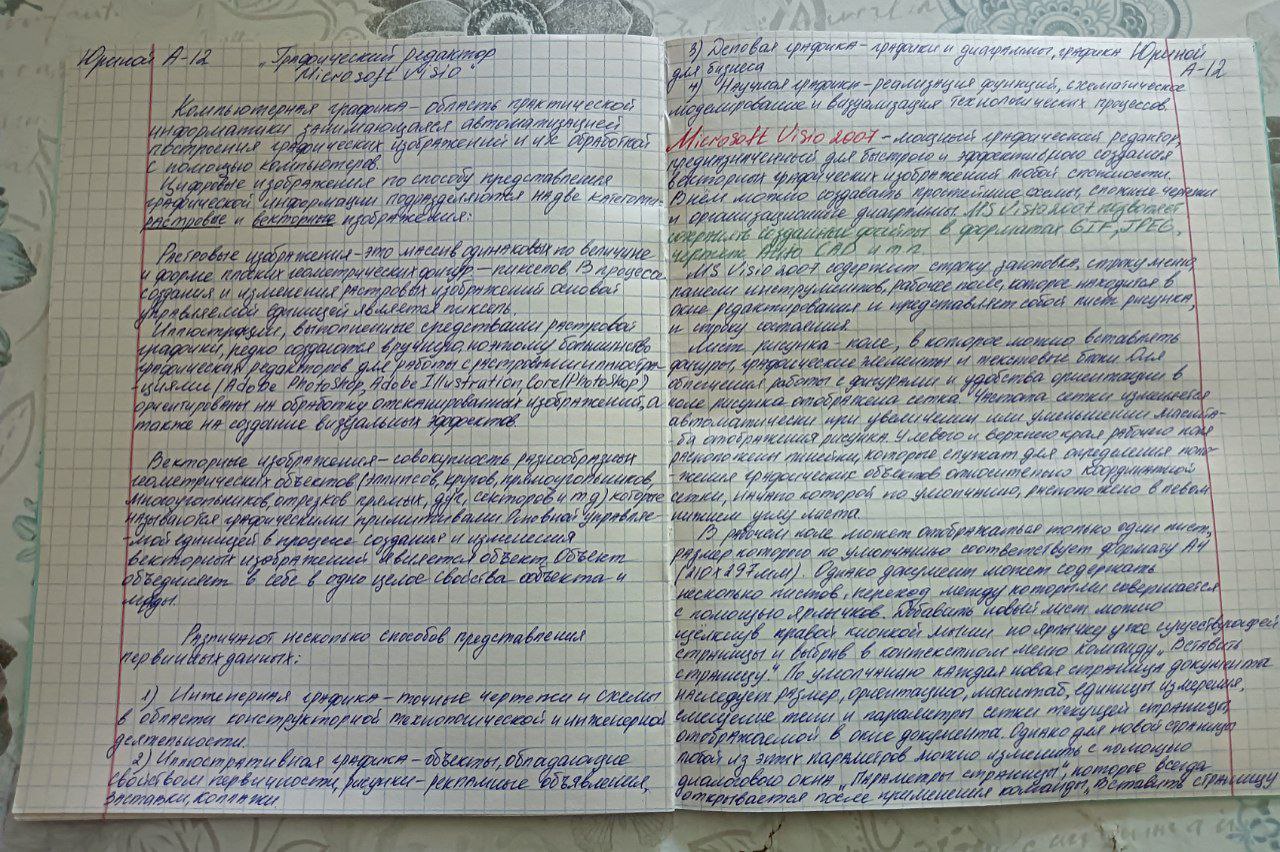 Юриной А-12 „Графический редактор
Microsoft Visio"
Компьютерная графика – область практической
информатики занимающаяся автоматизацией
построения графических изображений и их обработкой
с помощью компьютеров.
Цифровые изображения по способу представления
графической информации подразделяются на две категории
растровые и векторные изображения:
Растровые изображения – это массив одинаковых по величине
и форме плоских геометрических фигур – пикселов. В процессе
создания и изменения растровых изображений основой
управляемой единицей является пиксель.
Иллюстрации, выполненные средствами растровой
графики, редко создаются вручную, поэтому большинство
графических редакторов для работы с растровыми иллюстра-
-циями (Adobe Photoshop, Adobe Illustration, Corel Photoshop)
ориентированы на обработку отсканированных изображений, а
также на создание визуальных эффектов.
Векторные изображения – совокупность разнообразных
геометрических объектов (эллипсов, кругов, прямоугольников,
многоугольников, отрезков прямых, дуг, секторов и т.д) которые
называются графическими примитивами. Основной управляе-
-мой единицей в процессе создания и изменения
векторных изображений является объект. Объект
объединяет в себе в одно целое свойства объекта и
Различают несколько способов представления
первичных данных:
1) Инженерная графика – точные чертежи и схемы
в области конструкторной технологической и инженерной
деятельности.
2) Иллюстративная графика – объекты, обладающие
свойством первичности, рисунки – рекламные объявления,
заставки, коллажи
3) Деловая графика – графики и диаграммы, графика Юриной
для бизнеса А-12
4) Научная графика – реализация функций, схематическое
моделирование и визуализация технологических процессов
Microsoft Visio 2007 – мощный графический редактор,
предназначенный для быстрого и эффективного создания
векторных графических изображений любой сложности.
В нём можно создавать простейшие схемы, сложные чертежи
и организационные диаграммы. MS Visio 2007 позволяет
сохранить созданные файлы в форматах GIF, JPEG,
чертежи Auto CAD и т п.
MS Visio 2007 содержит строку заголовка, строку меню,
панели инструментов, рабочее поле, которое находится в
окне редактирования и представляет собой лист рисунка,
и строку состояния.
Лист рисунка – поле, в которое можно вставлять
фигуры, графические элементы и текстовые блоки. Для
облегчения работы с фигурами и удобства ориентации в
поле рисунка отображена сетка. Частота сетки изменяется
автоматически при увеличении или уменьшении масшта-
ба отображения рисунка. У левого и верхнего края рабочего поля
расположены линейки, которые служат для определения поло-
жения графических объектов относительно координатной
сетки, начало которой по умолчанию, расположено в левом
нижнем углу листа.
В рабочем поле может отображаться только один лист,
размер которого по умолчанию соответствует формату А4
(210x297мм). Однако документ может содержать
несколько листов, переход между которыми совершается
с помощью ярлычков. Добавить новый лист можно
щелкнув правой кнопкой мыши по ярлычку уже существующей
страницы и выбрав в контекстном меню команду „Вставить
страницу." По умолчанию каждая новая страница документа
наследует размер, ориентацию, масштаб, единицы измерения,
смещение тени и параметры сетки текущей страницы,
отображаемой в окне документа. Однако для новой страницы
любой из этих параметров можно изменить с помощью
диалогового окна „Параметры страницы", которое всегда
открывается после применения команды „Вставить страницу